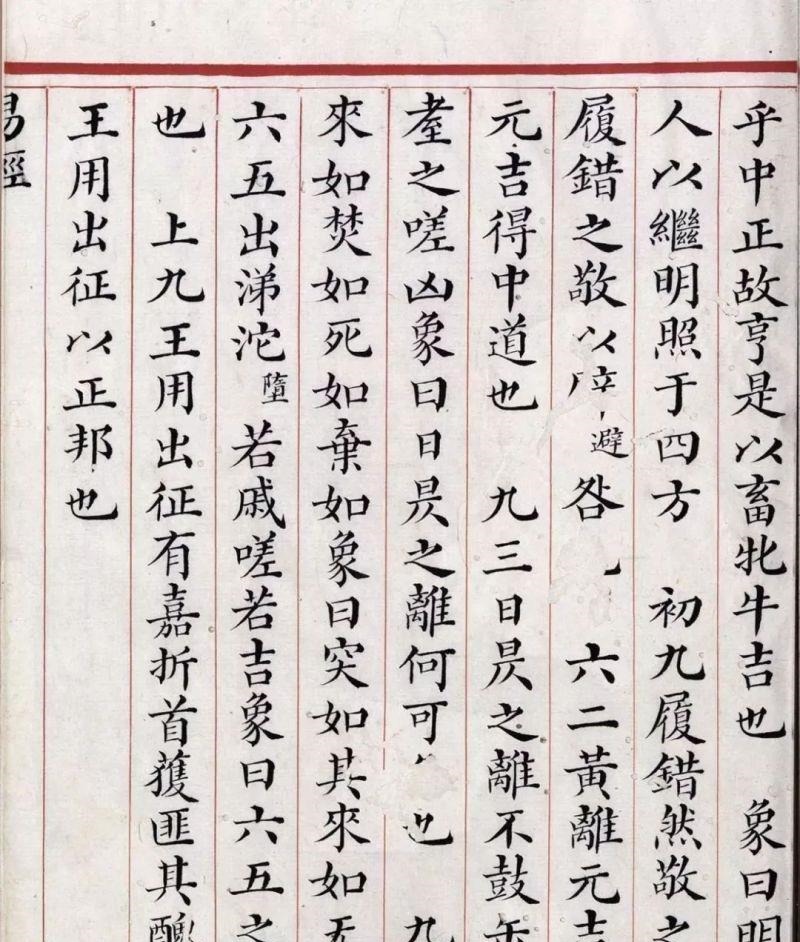 乎中正故亨是以畜牝牛吉也　象曰明
人以繼明照于四方　初九履錯然敬之
履錯之敬以避咎　六二黃離元吉
元吉得中道也　九三日昃之離不鼓缶
耋之嗟凶象曰日昃之離何可也　九
來如焚如死如棄如象曰突如其來如无
六五出涕沱墮若戚嗟若吉象曰六五之
也　上九王用出征有嘉折首獲匪其醜
王用出征以正邦也
易經